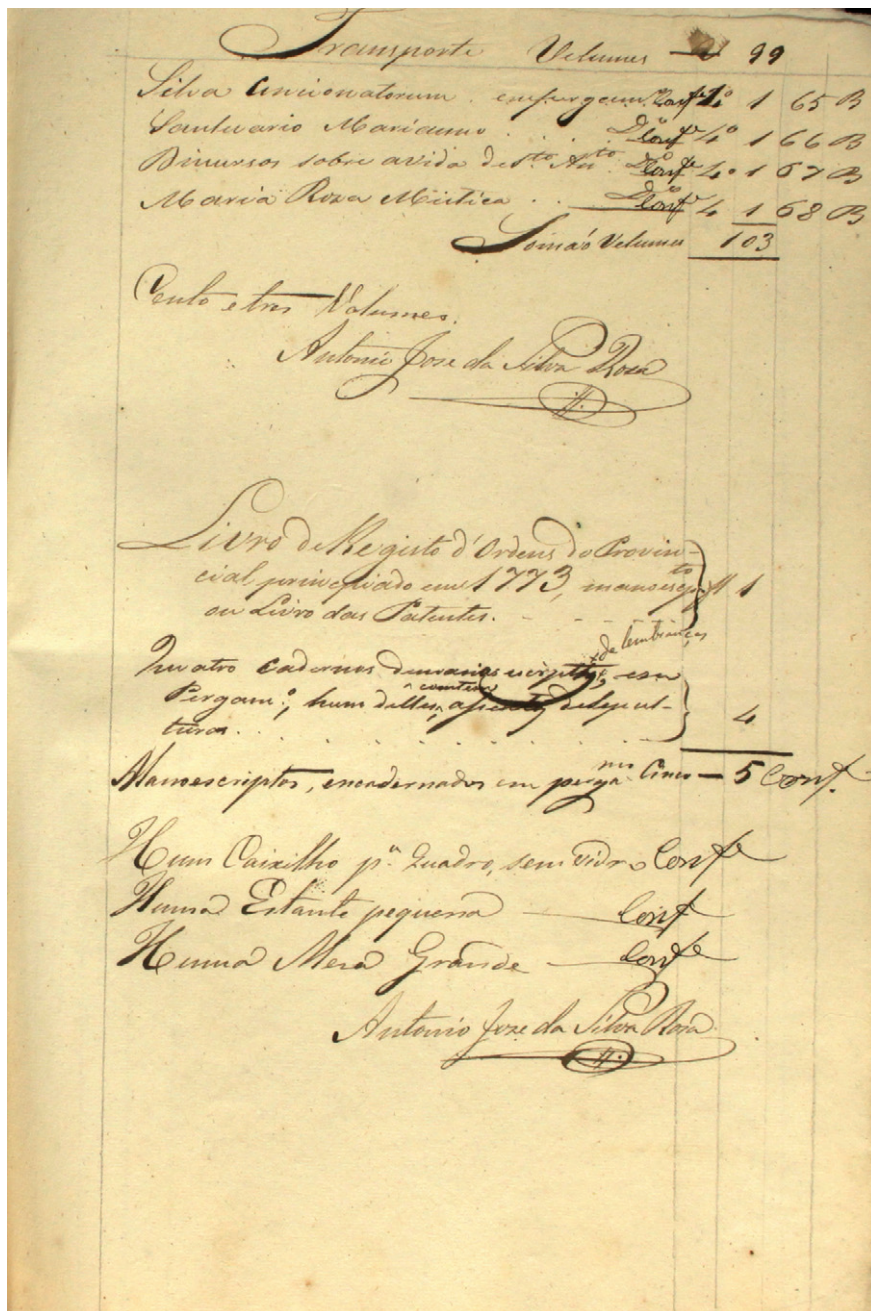 Transporte Volumes — 99
Silva Concionatorum. em pergam.º Conf.e 4º 1 65 B
Santuario Marianno . . Dº Conf.e 4º 1 66 B
Discursos sobre a vida de S.to An.to Dº Conf.e 4º 1 67 B
Maria Roza Mistica . . Dº Conf.e 4 1 68 B
Somaõ Volumes 103
Cento e tres Volumes.
Antonio Jose da Silva Roza
Livro de Registo d'Ordens do Provin-
cial principiado em 1773, manoescpto 1
ou Livro das Patentes. - - -
de lembranças
Quatro cadernos de escriptos, em
Pergam.º, hum delles, contem assentos de sepul-
turas. . . . . 4
Manoescriptos, encadernados em pergam.nos Cinco — 5 Conf.
Hum Caixilho p.ª Quadro, sem vidro Conf.e
Huma Estante pequena — Conf.e
Huma Meza Grande — Conf.e
Antonio Joze da Silva Roza.